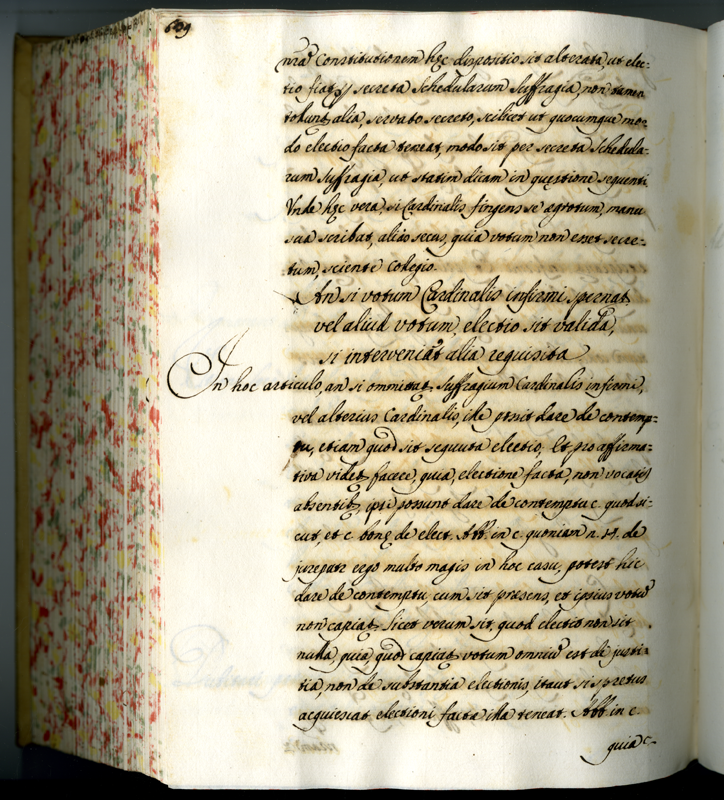 609
nrã Constitutionem hęc dispositio sit alterata, ut elec-
tio fiat per secreta Schedularum Suffragia, non tamen
tollunt alia, servato secreto, scilicet ut quocumque mo-
do electio facta teneat, modo sit per secreta Schedula-
rum Suffragia, ut statim dicam in quęstione sequenti.
Unde hęc vera, si Cardinalis fingens se ægrotum, manu
sua scribat, aliàs secus, quia votum non esset secre-
tum, sciente Collegio.
An si votum Cardinalis infirmi spernat
vel aliud votum, electio sit valida,
si interveniãt alia requisita
In hoc articulo, an si ommittat Suffragium Cardinalis infirmi,
vel alterius Cardinalis, ille possit dare de contemp-
tu, etiam quod sit sequuta electio, Et pro affirma-
tiva videt facere, quia, electione facta, non vocatis
absentib, ipsi possunt dare de contemptu c. quod si-
cut, et c. bonę de elect. Abb. in c. quoniam n. 14. de
jurepatr. ergo multo magis in hoc casu, potest hic
dare de contemptu cum sit præsens, et ipsius votũ
non capiat, licet verum sit, quod electio non sit
nulla, quia, quod capiat votum omniũ est de justi-
tia, non de substantia electionis, itaut si spretus
acquiescat electioni facta illa teneat. Abb. in c.
quia c-